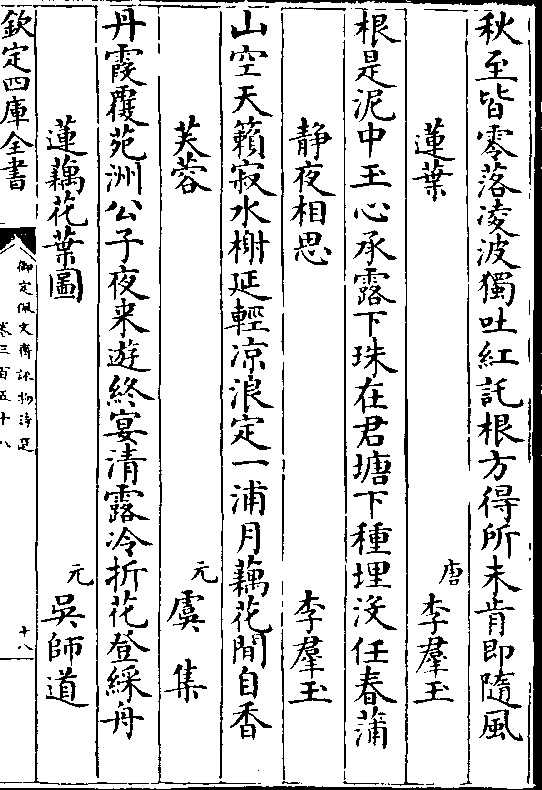 秋至皆零落凌波獨吐紅託根方得所未肯即隨風
蓮葉 唐 李羣玉
根是泥中玉心承露下珠在君塘下種埋没任春蒲
静夜相思 李羣玉
山空天籟寂水榭延輕凉浪定一浦月藕花閒自香
芙蓉 元 虞集
丹霞覆苑洲公子夜来遊終宴清露冷折花登綵舟
蓮藕花葉圖 元 吳師道
欽定四庫全書
御定佩文齋詠物詩選
卷三百五十八
十八